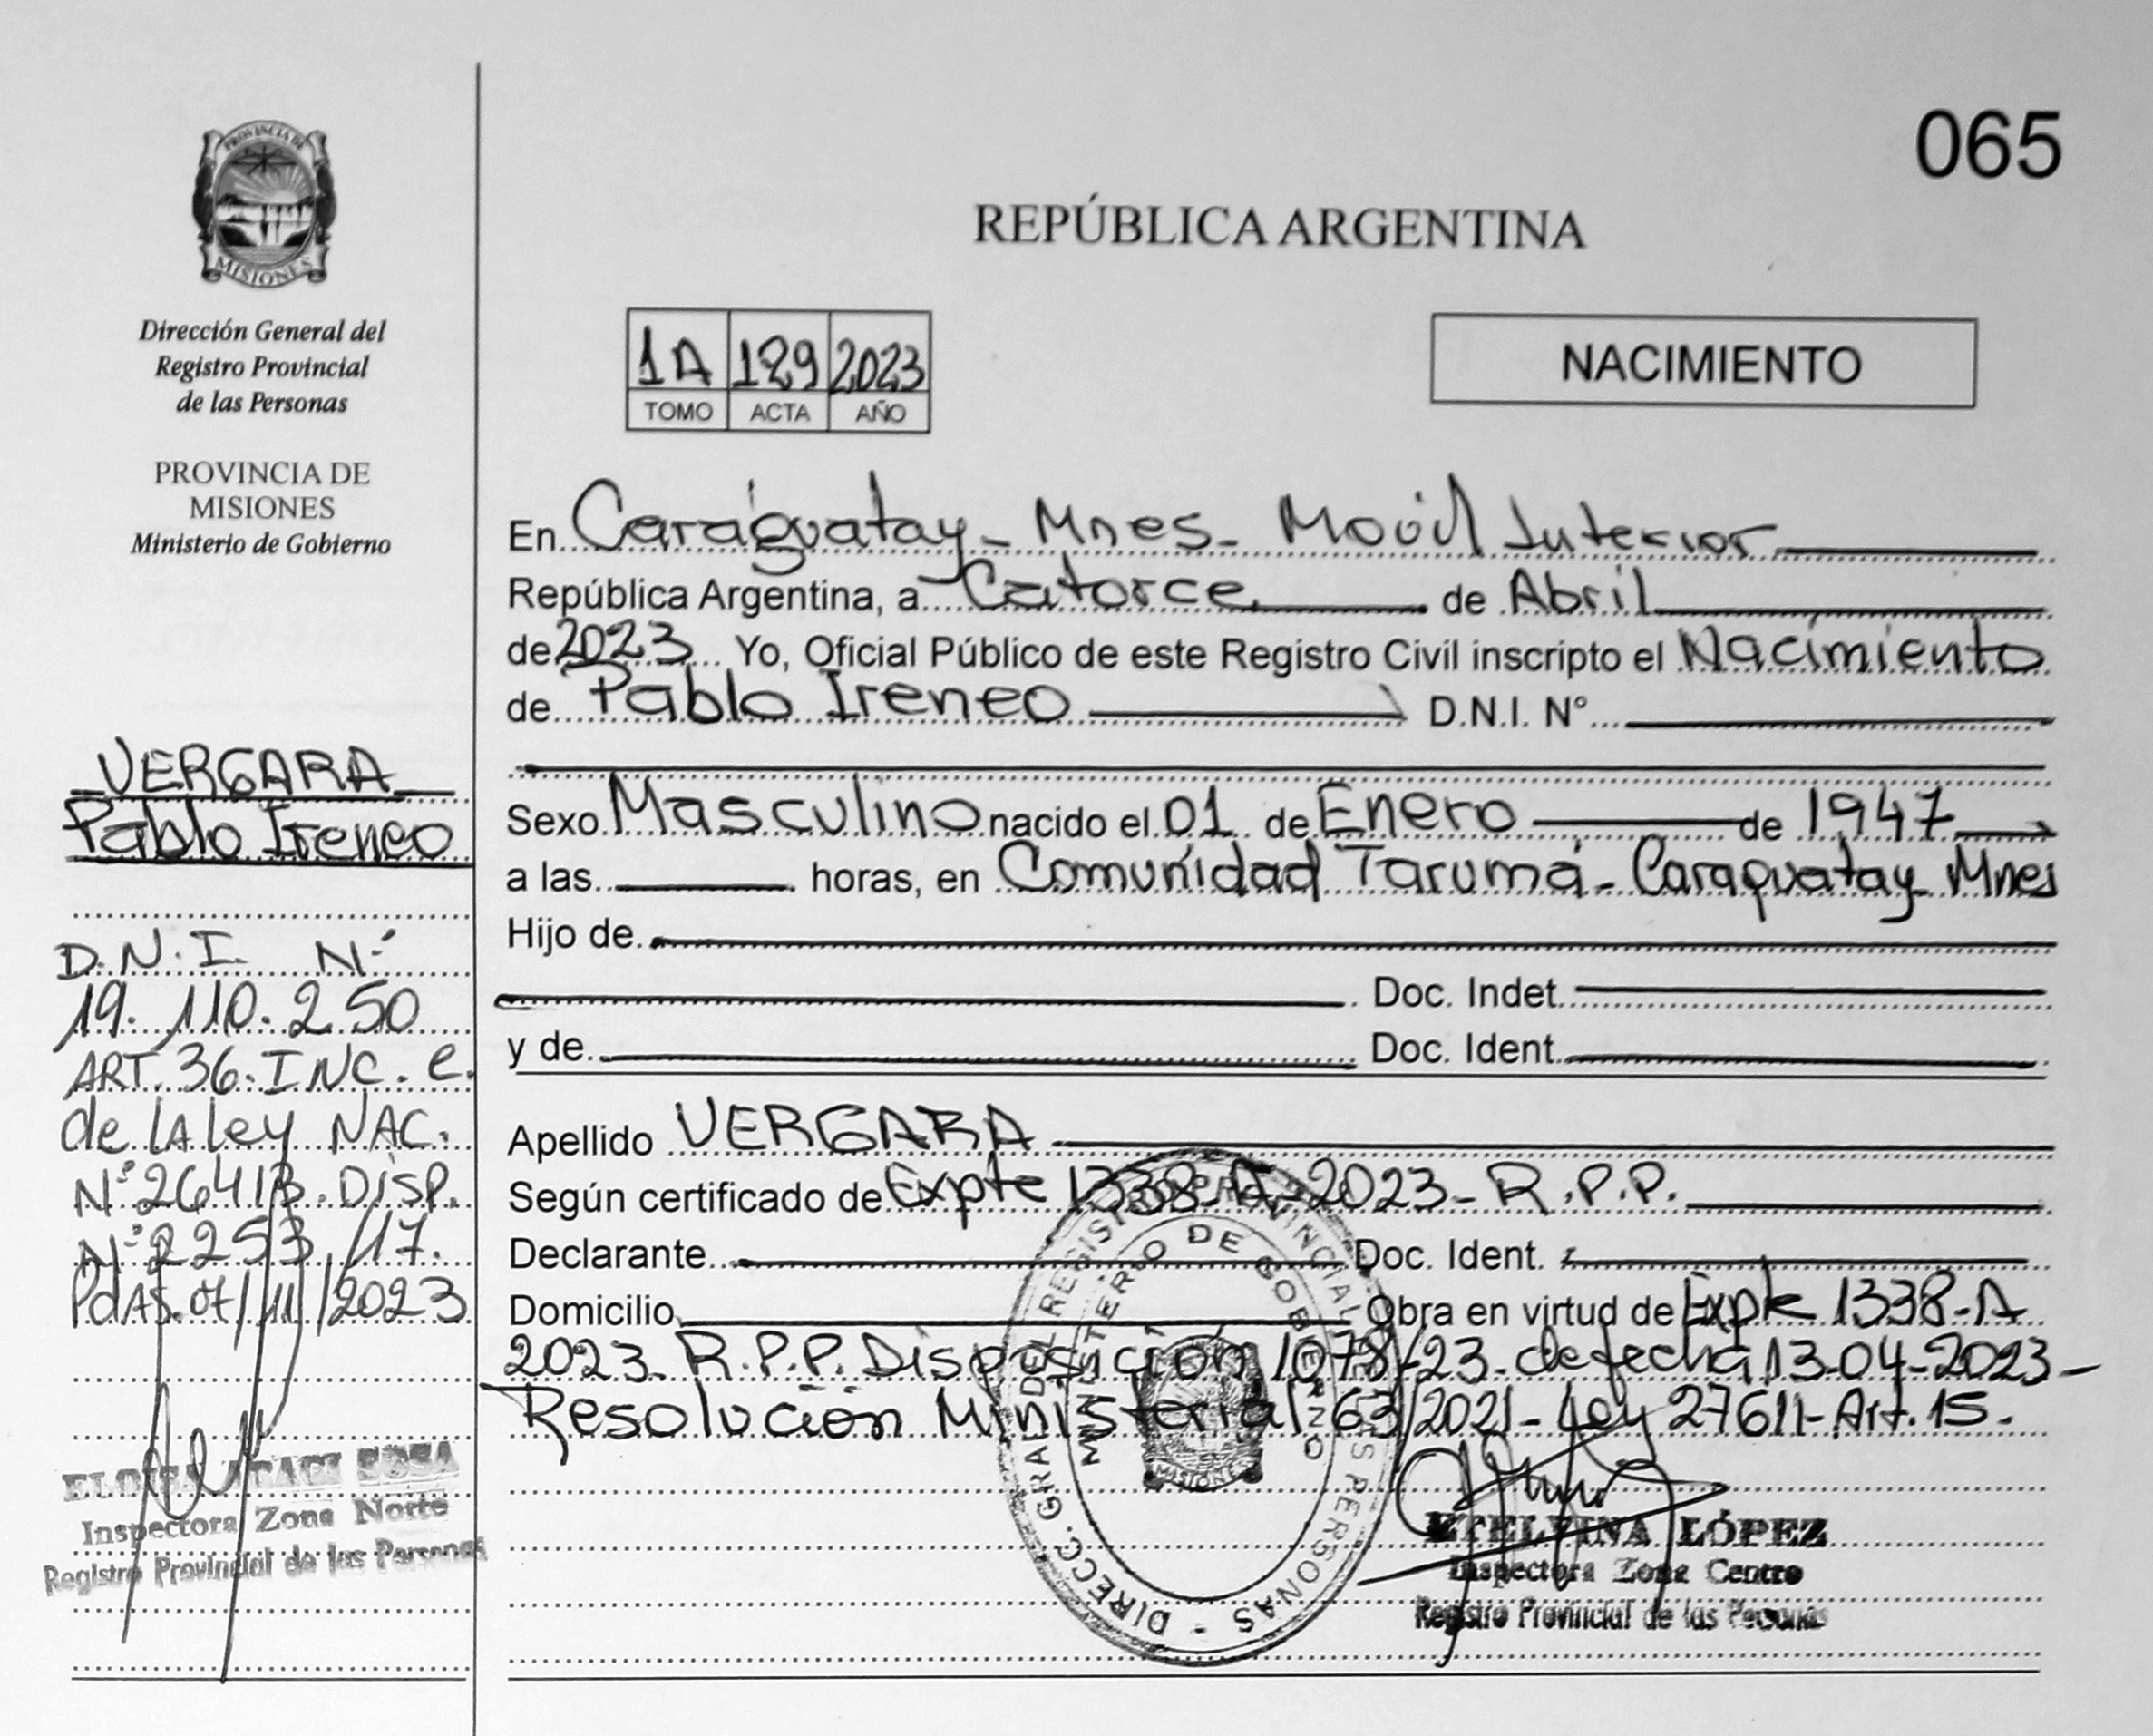 065
PROVINCIA DE
MISIONES
Dirección General del
Registro Provincial
de las Personas
PROVINCIA DE
MISIONES
Ministerio de Gobierno
VERGARA
Pablo Ireneo
D.N.I. Nº
19.110.250
ART. 36. INC. e.
de LA Ley NAC.
Nº 26413. DISP.
Nº 2253/17.
PdAS. 07/11/2023
ELOISA SOSA
Inspectora Zona Norte
Registro Provincial de las Personas
REPÚBLICA ARGENTINA
1A 129 2023
TOMO ACTA AÑO
NACIMIENTO
En Caraguatay - Mnes - Movil Interior
República Argentina, a Catorce de Abril
de 2023 Yo, Oficial Público de este Registro Civil inscripto el Nacimiento
de Pablo Ireneo D.N.I. N°
Sexo Masculino nacido el 01 de Enero de 1947
a las horas, en Comunidad Tarumá - Caraguatay Mnes
Hijo de
Doc. Indet
y de Doc. Ident
Apellido VERGARA
Según certificado de Expte 1338-A-2023- R.P.P.
Declarante Doc. Ident.
Domicilio Obra en virtud de Expte 1338-A
2023- R.P.P. Disposición 1078/23- de fecha 13-04-2023-
Resolución Ministerial 63/2021- Ley 27611- Art. 15.
DIRECC. GRAL DEL REGISTRO PROVINCIAL DE LAS PERSONAS
MINISTERIO DE GOBIERNO
MISIONES
ETELVINA LÓPEZ
Inspectora Zona Centro
Registro Provincial de las Personas